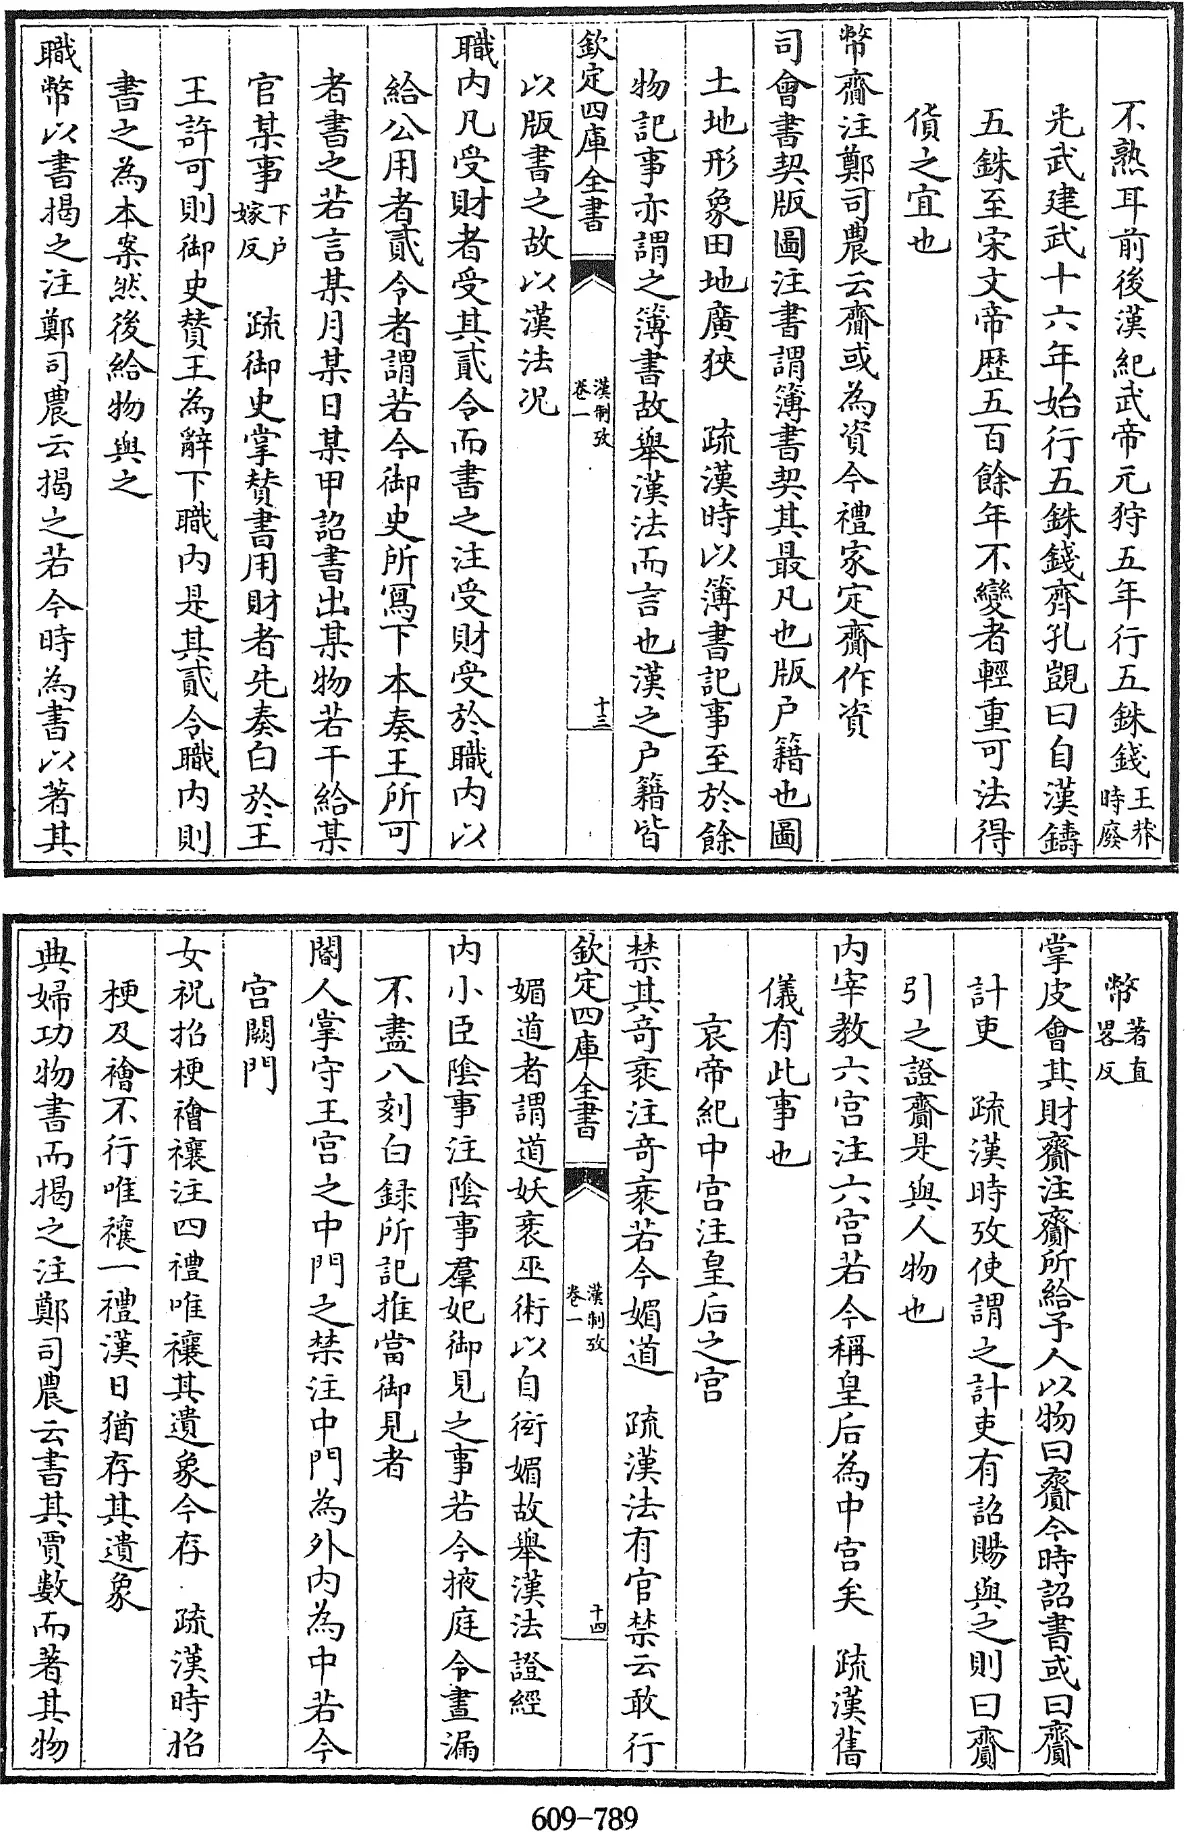 不熟耳前後漢紀武帝元狩五年行五銖錢王莽時廢
光武建武十六年始行五銖錢齊孔覬曰自漢鑄
五銖至宋文帝歴五百餘年不變者輕重可法得
貨之宜也
幣齎注鄭司農云齎或為資今禮家定齎作資
司㑹書契版圖注書謂簿書契其最凡也版户籍也圖
土地形象田地廣狹 疏漢時以簿書記事至於餘
物記事亦謂之簿書故舉漢法而言也漢之户籍皆
欽定四庫全書 漢制攷 卷一 十三
以版書之故以漢法况
職内凡受財者受其貳令而書之注受財受於職内以
給公用者貳令者謂若今御史所冩下本奏王所可
者書之若言某月某日某甲詔書出某物若干給某
官某事下户嫁反 疏御史掌賛書用財者先奏白於王
王許可則御史賛王為辭下職内是其貳令職内則
書之為本案然後給物與之
職幣以書揭之注鄭司農云揭之若今時為書以著其
幣著直畧反
掌皮㑹其財齎注齎所給予人以物曰齎今時詔書或曰齎
計吏 疏漢時攷使謂之計吏有詔賜與之則曰齎
引之證齎是與人物也
内宰教六宫注六宫若今稱皇后為中宫矣 疏漢舊
儀有此事也
哀帝紀中宫注皇后之宫
禁其奇衺注奇衺若今媚道 疏漢法有官禁云敢行
欽定四庫全書 漢制攷 卷一 十四
媚道者謂道妖衺巫術以自衒媚故舉漢法證經
内小臣陰事注陰事羣妃御見之事若今掖庭令晝漏
不盡八刻白録所記推當御見者
閽人掌守王宫之中門之禁注中門為外内為中若今
宫闕門
女祝招梗禬禳注四禮唯禳其遺象今存 疏漢時招
梗及禬不行唯禳一禮漢日猶存其遺象
典婦功物書而揭之注鄭司農云書其賈數而著其物
609-789